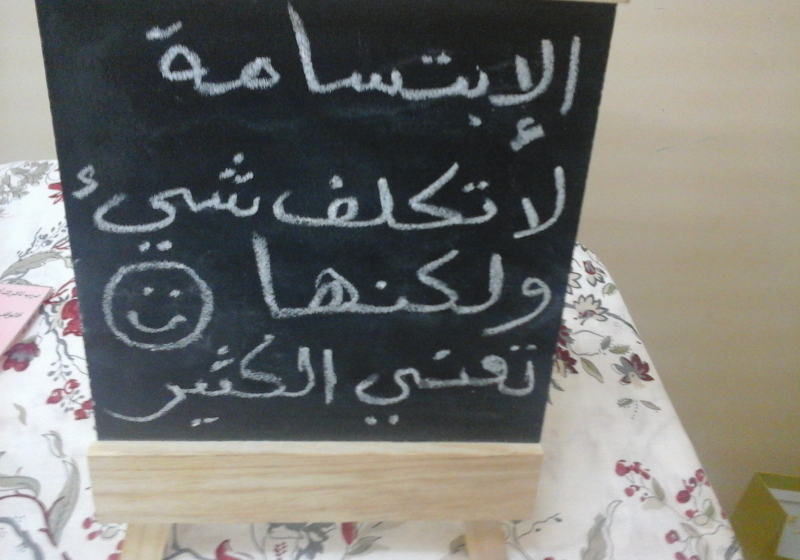 الإبتسامة
لا تكلف شيء
ولكنها
تعني الكثير